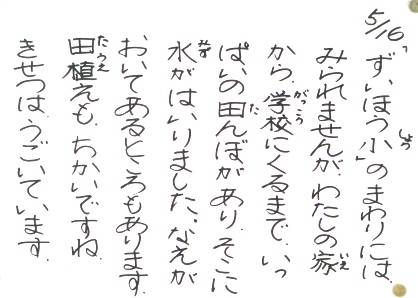 5/16、「ずいほう小」のまわりには、
みられませんが、わたしの家
から、学校にくるまで、いっ
ぱいの田んぼがあり、そこに
水がはいりました。なえが
おいてあるところもあります。
田植えも、ちかいですね。
きせつは、うごいています。